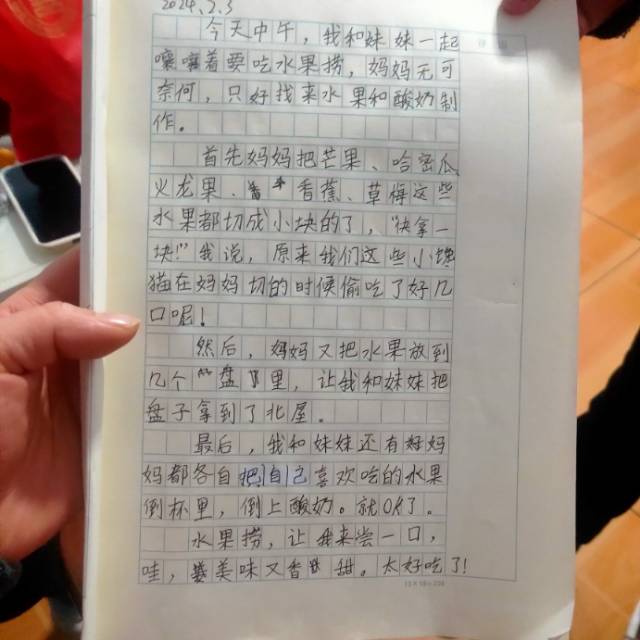 2024.2.3
今天中午，我和妹妹一起
嚷嚷着要吃水果捞，妈妈无可
奈何，只好找来水果和酸奶制
作。
首先妈妈把芒果、哈密瓜、
火龙果、香蕉、草莓这些
水果都切成小块的了，“快拿一
块!”我说，原来我们这些小馋
猫在妈妈切的时候偷吃了好几
口呢!
然后，妈妈又把水果放到
几个盘里，让我和妹妹把
盘子拿到了北屋。
最后，我和妹妹还有妈
妈都各自把自己喜欢吃的水果
倒杯里，倒上酸奶。就OK了。
水果捞，让我来尝一口，
哇，美味又香甜。太好吃了!